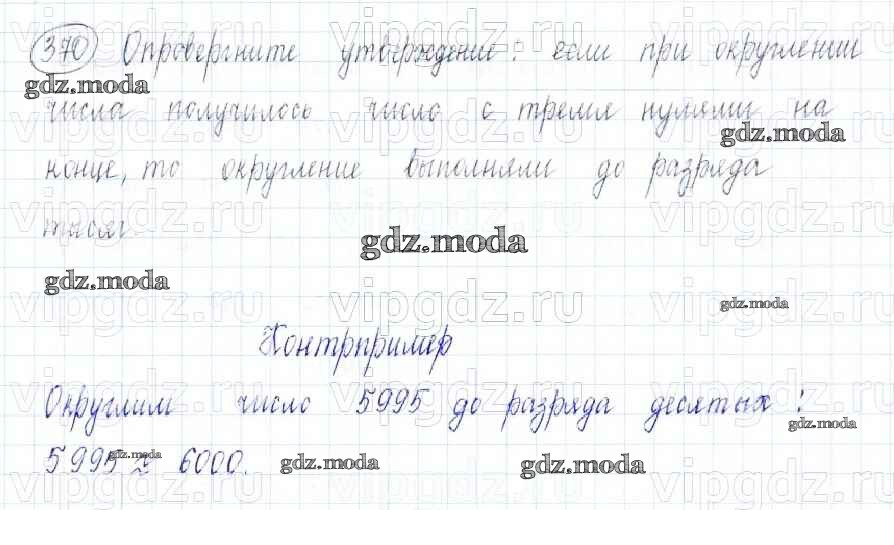 370 Опровергните утверждение: если при округлении
gdz.moda
числа получилось число с тремя нулями на
gdz.moda
конце, то округление выполняли до разряда
тысяч
gdz.moda
gdz.moda
gdz.moda
Контрпример
Округлим число 5995 до разряда десятых:
gdz.moda
5995 ≈ 6000.
gdz.moda
gdz.moda
gdz.moda
vipgdz.ru